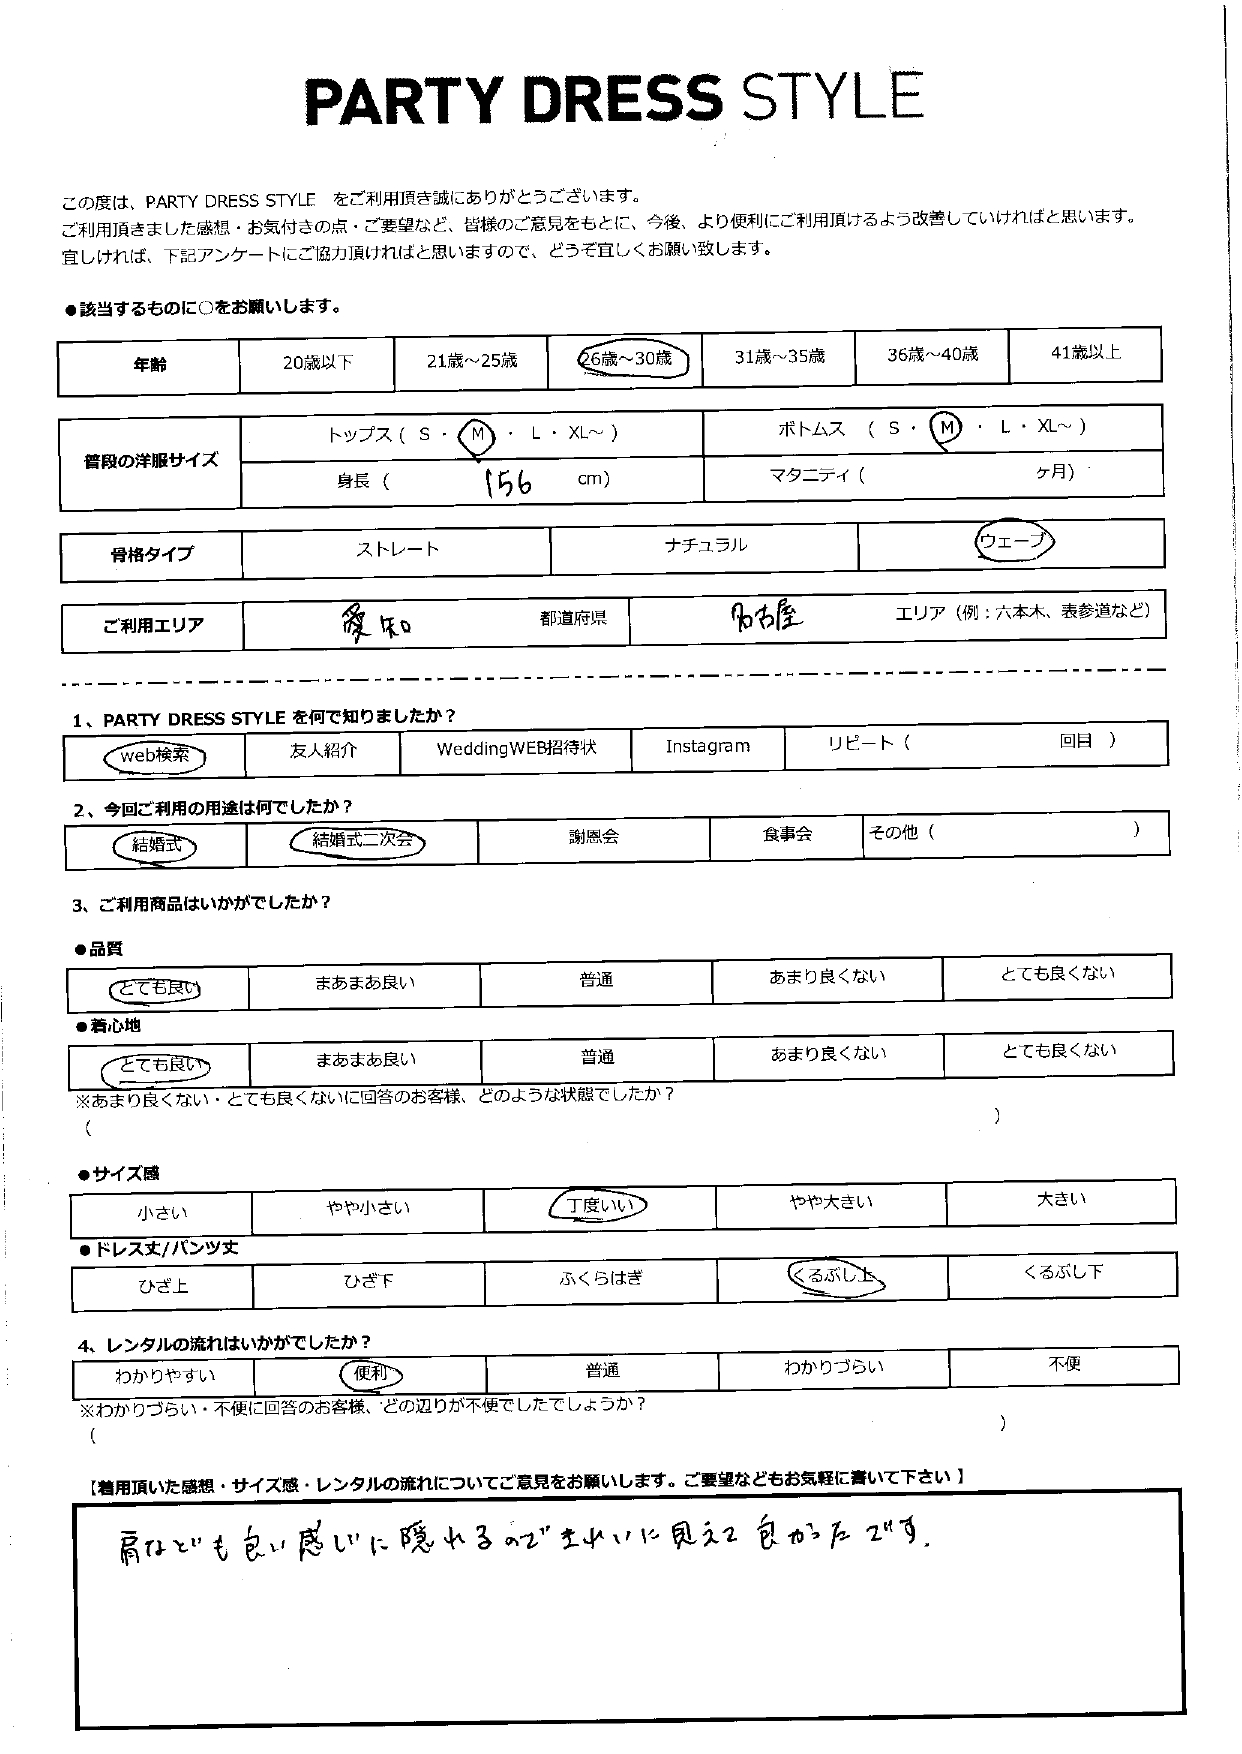 PARTY DRESS STYLE
この度は、PARTY DRESS STYLE をご利用頂き誠にありがとうございます。
ご利用頂きました感想・お気付きの点・ご要望など、皆様のご意見をもとに、今後、より便利にご利用頂けるよう改善していければと思います。
宜しければ、下記アンケートにご協力頂ければと思いますので、どうぞ宜しくお願い致します。
●該当するものに○をお願いします。
年齢 20歳以下 21歳～25歳 26歳～30歳 31歳～35歳 36歳～40歳 41歳以上
普段の洋服サイズ トップス ( S ・ M ・ L ・ XL～ ) ボトムス ( S ・ M ・ L ・ XL～ )
身長 ( 156 cm) マタニティ ( ヶ月)
骨格タイプ ストレート ナチュラル ウェーブ
ご利用エリア 愛知 都道府県 名古屋 エリア（例：六本木、表参道など）
1、PARTY DRESS STYLE を何で知りましたか？
web検索 友人紹介 WeddingWEB招待状 Instagram リピート ( 回目 )
2、今回ご利用の用途は何でしたか？
結婚式 結婚式二次会 謝恩会 食事会 その他 ( )
3、ご利用商品はいかがでしたか？
●品質
とても良い まあまあ良い 普通 あまり良くない とても良くない
●着心地
とても良い まあまあ良い 普通 あまり良くない とても良くない
※あまり良くない・とても良くないに回答のお客様、どのような状態でしたか？
( )
●サイズ感
小さい やや小さい 丁度いい やや大きい 大きい
●ドレス丈/パンツ丈
ひざ上 ひざ下 ふくらはぎ くるぶし上 くるぶし下
4、レンタルの流れはいかがでしたか？
わかりやすい 便利 普通 わかりづらい 不便
※わかりづらい・不便に回答のお客様、どの辺りが不便でしたでしょうか？
( )
【着用頂いた感想・サイズ感・レンタルの流れについてご意見をお願いします。ご要望などもお気軽に書いて下さい 】
肩なども良い感じに隠れるのできれいに見えて良かったです.